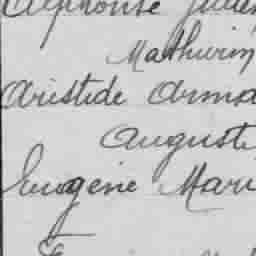 Alphonse Julien
Mathurin
Aristide Arma
Auguste
Eugène Mari